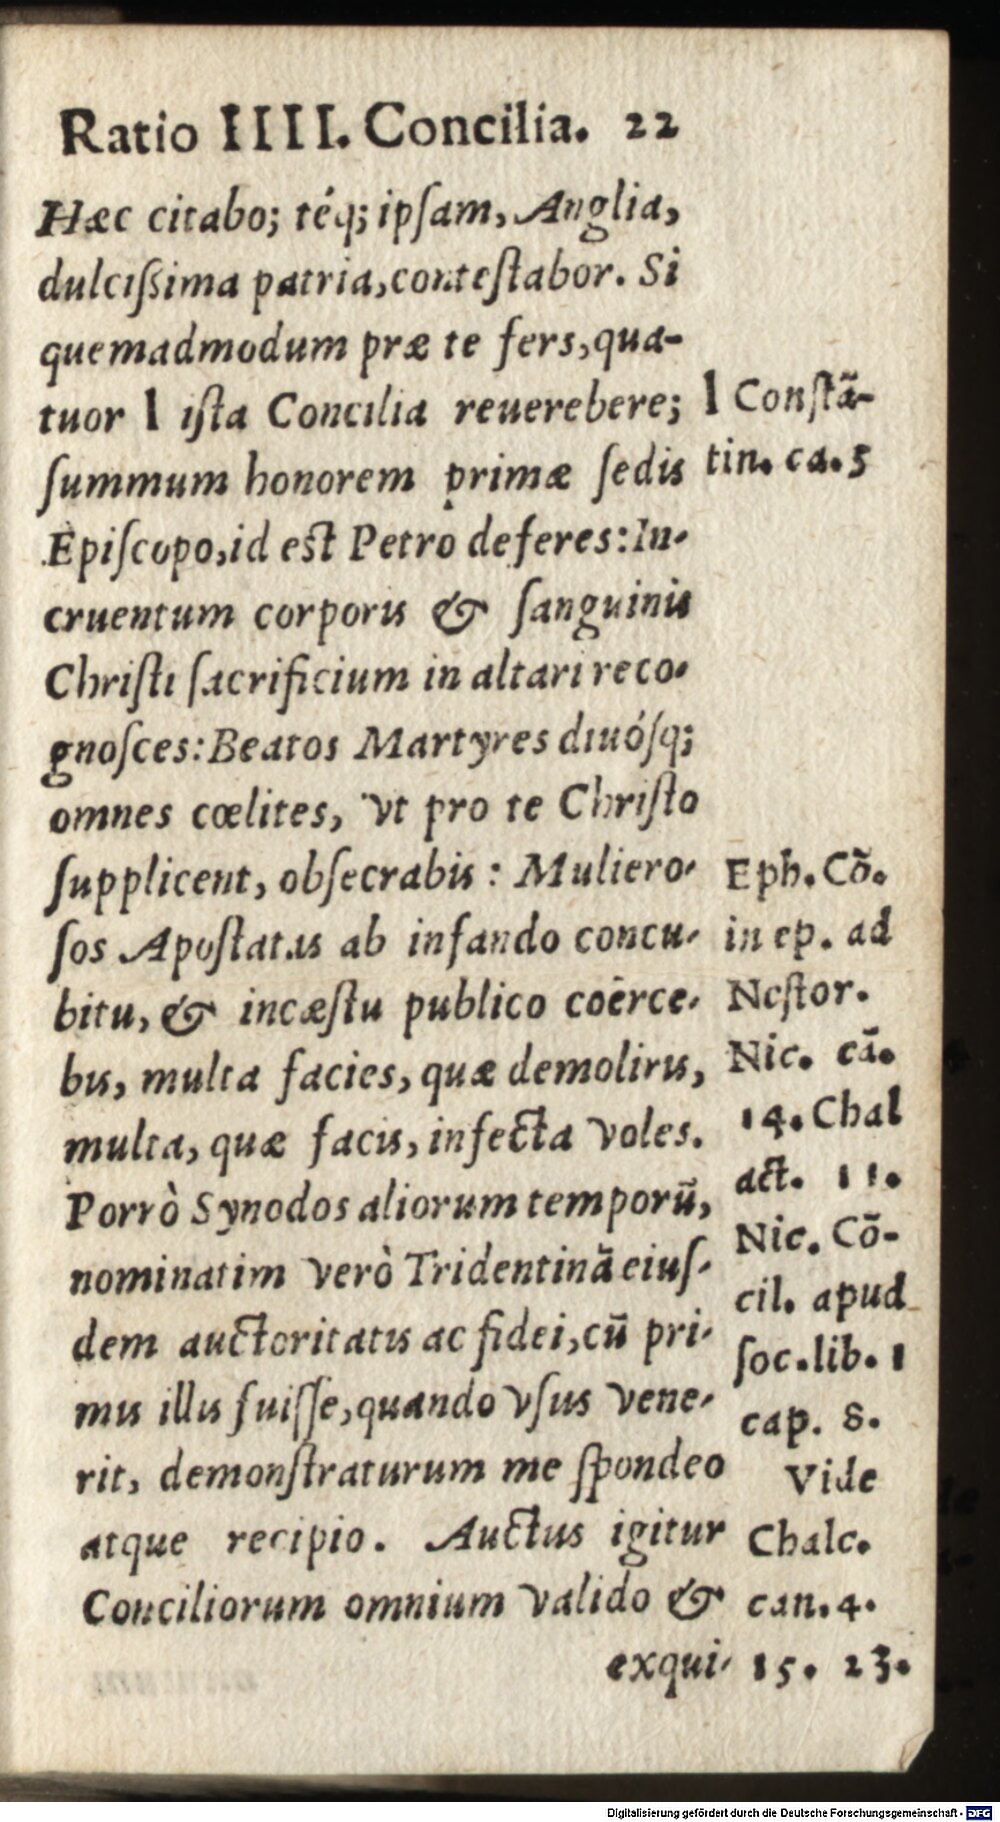 Ratio IIII. Concilia. 22
Hæc citabo; téq; ipſam, Anglia,
dulciſsima patria, conteſtabor. Si
quemadmodum præ te fers, qua-
tuor l iſta Concilia reuerebere;
ſummum honorem primæ ſedis
Epiſcopo, id eſt Petro deferes: In-
cruentum corporis & ſanguinis
Chriſti ſacrificium in altari reco-
gnoſces: Beatos Martyres diuóſq;
omnes cœlites, vt pro te Chriſto
ſupplicent, obſecrabis: Muliero-
ſos Apoſtatas ab infando concu-
bitu, & incæſtu publico coërce-
bis, multa facies, quæ demoliris,
multa, quæ facis, infecta voles.
Porrò Synodos aliorum temporū,
nominatim verò Tridentinã eiuſ-
dem auctoritatis ac fidei, cū pri-
mis illis fuiſſe, quando vſus vene-
rit, demonſtraturum me ſpondeo
atque recipio. Auctus igitur
Conciliorum omnium valido &
exqui-
l Conſtã-
tin. ca. 5
Eph. Cõ.
in ep. ad
Neſtor.
Nic. cã.
14. Chal
act. 11.
Nic. Cõ-
cil. apud
ſoc. lib. 1
cap. 8.
Vide
Chalc.
can. 4.
15. 23.
Digitalisierung gefördert durch die Deutsche Forschungsgemeinschaft - DFG